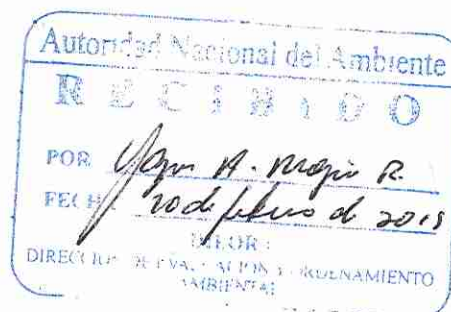 Autoridad Nacional del Ambiente
RECIBIDO
POR A.  R.
FECHA de febrero de 2015
DIRECCION DE EVALUACION Y ORDENAMIENTO
AMBIENTAL